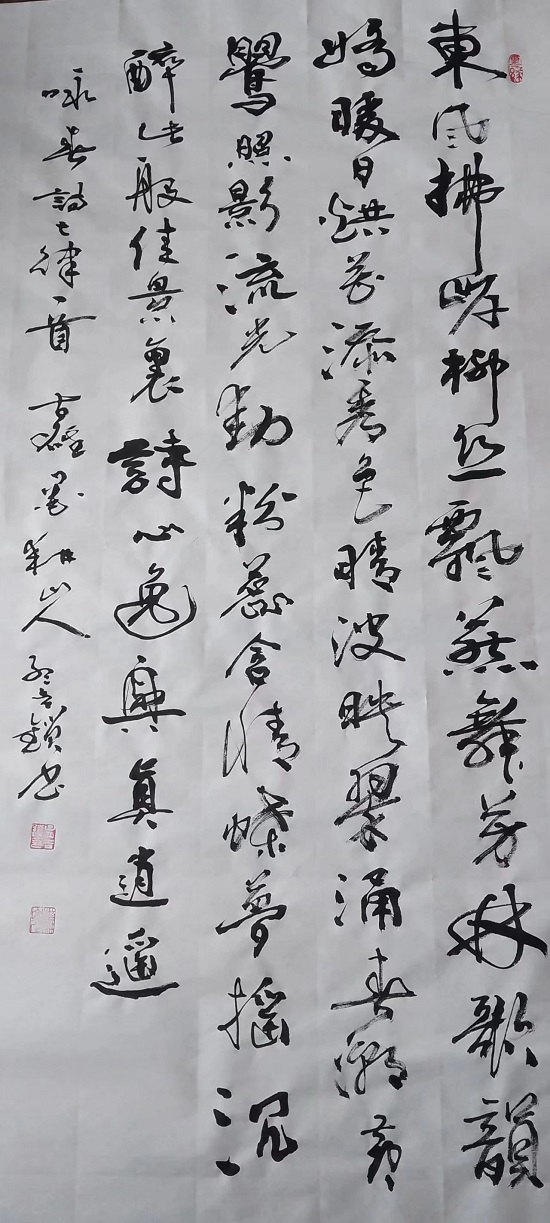 東風拂岸柳絲飄燕舞芳林歌韻
嬌暖日烘花添秀色晴波映翠涌春潮黃
鶯照影流光動粉蕊含情蝶夢搖沉
醉此般佳景裏詩心逸興真逍遥
咏春詩七律一首 古 墨耕山人 鎖書